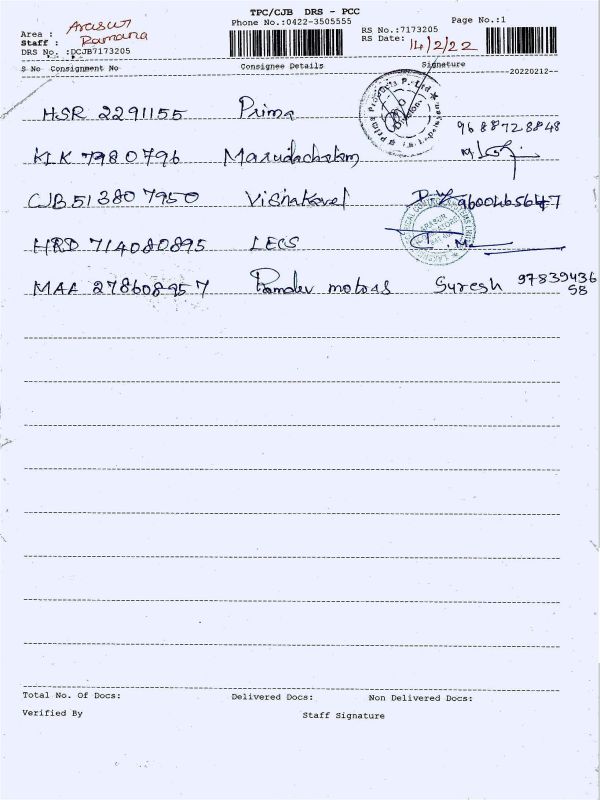 TPC/CJB DRS - PCC
Phone No.:0422-3505555 Page No.:1
Area : Arasur
Staff : Ramana
DRS No. :DCJB7173205
RS No.:7173205
RS Date: 14/2/22
S No Consignment No Consignee Details Signature
--20220212--
HSR 2291155 Prima
9688728848
KLK 7980796
CJB 513807950 9600465647
HRD 714080895 LECS
MAA 278608957 Ramdev motors Suresh 97839436
58
Total No. Of Docs: Delivered Docs: Non Delivered Docs:
Verified By Staff Signature